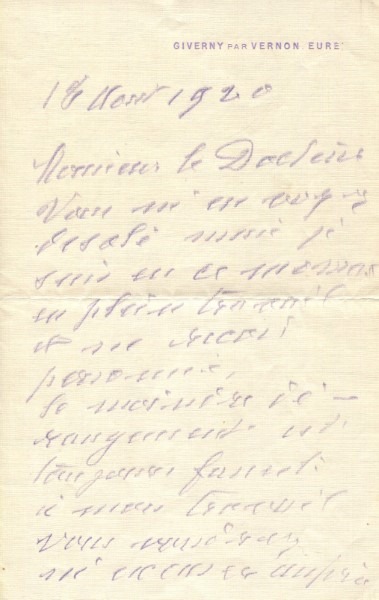 GIVERNY PAR VERNON EURE
18 Aout 1920
Monsieur le Docteur
Vous m'en voyez
desolé mais je
suis en ce moment
en plein travail
et ne reçois
personne,
le moindre dé-
rangement est
toujours funeste
à mon travail
vous voudrez
m'excuser auprès